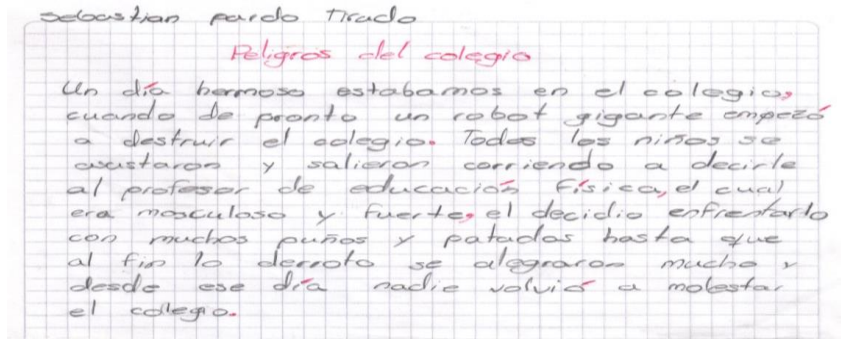 sebastian pardo Tirado
Peligros del colegio
Un día hermoso estabamos en el colegio,
cuando de pronto un robot gigante empezó
a destruir el colegio. Todos los niños se
asustaron y salieron corriendo a decirle
al profesor de educación Física, el cual
era mosculoso y fuerte, el decidio enfrentarlo
con muchos puños y patadas hasta que
al fin lo derroto se alegraron mucho y
desde ese día nadie volvió a molestar
el colegio.